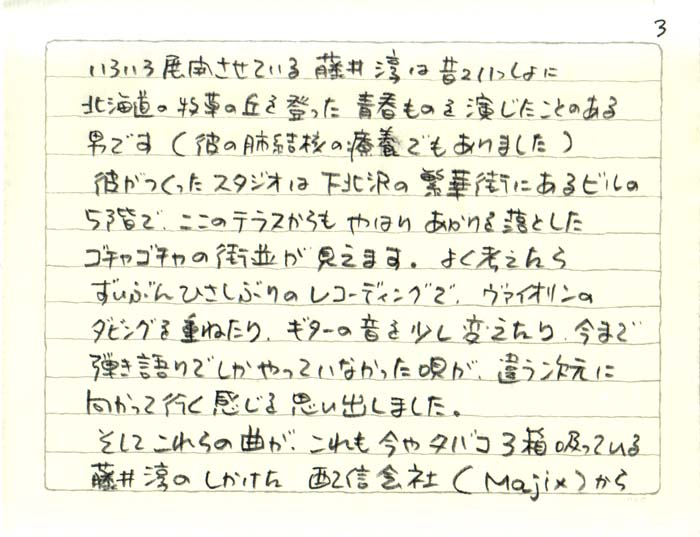 3
いろいろ展開させている 藤井淳は昔いっしょに
北海道の牧草の丘を登った 青春ものを演じたことのある
男です(彼の肺結核の療養でもありました)
彼がつくったスタジオは下北沢の繁華街にあるビルの
5階で、ここのテラスからも やはり あかりを落とした
ゴチャゴチャの街並が見えます。よく考えたら
ずいぶんひさしぶりのレコーディングで、ヴァイオリンの
ダビングを重ねたり、ギターの音を少し変えたり、今まで
弾き語りでしかやっていなかった唄が、違う次元に
向かって行く感じを思い出しました。
そしてこれらの曲が、これも今やタバコ3箱吸っている
藤井淳のしかけた 配信会社(Majix)から